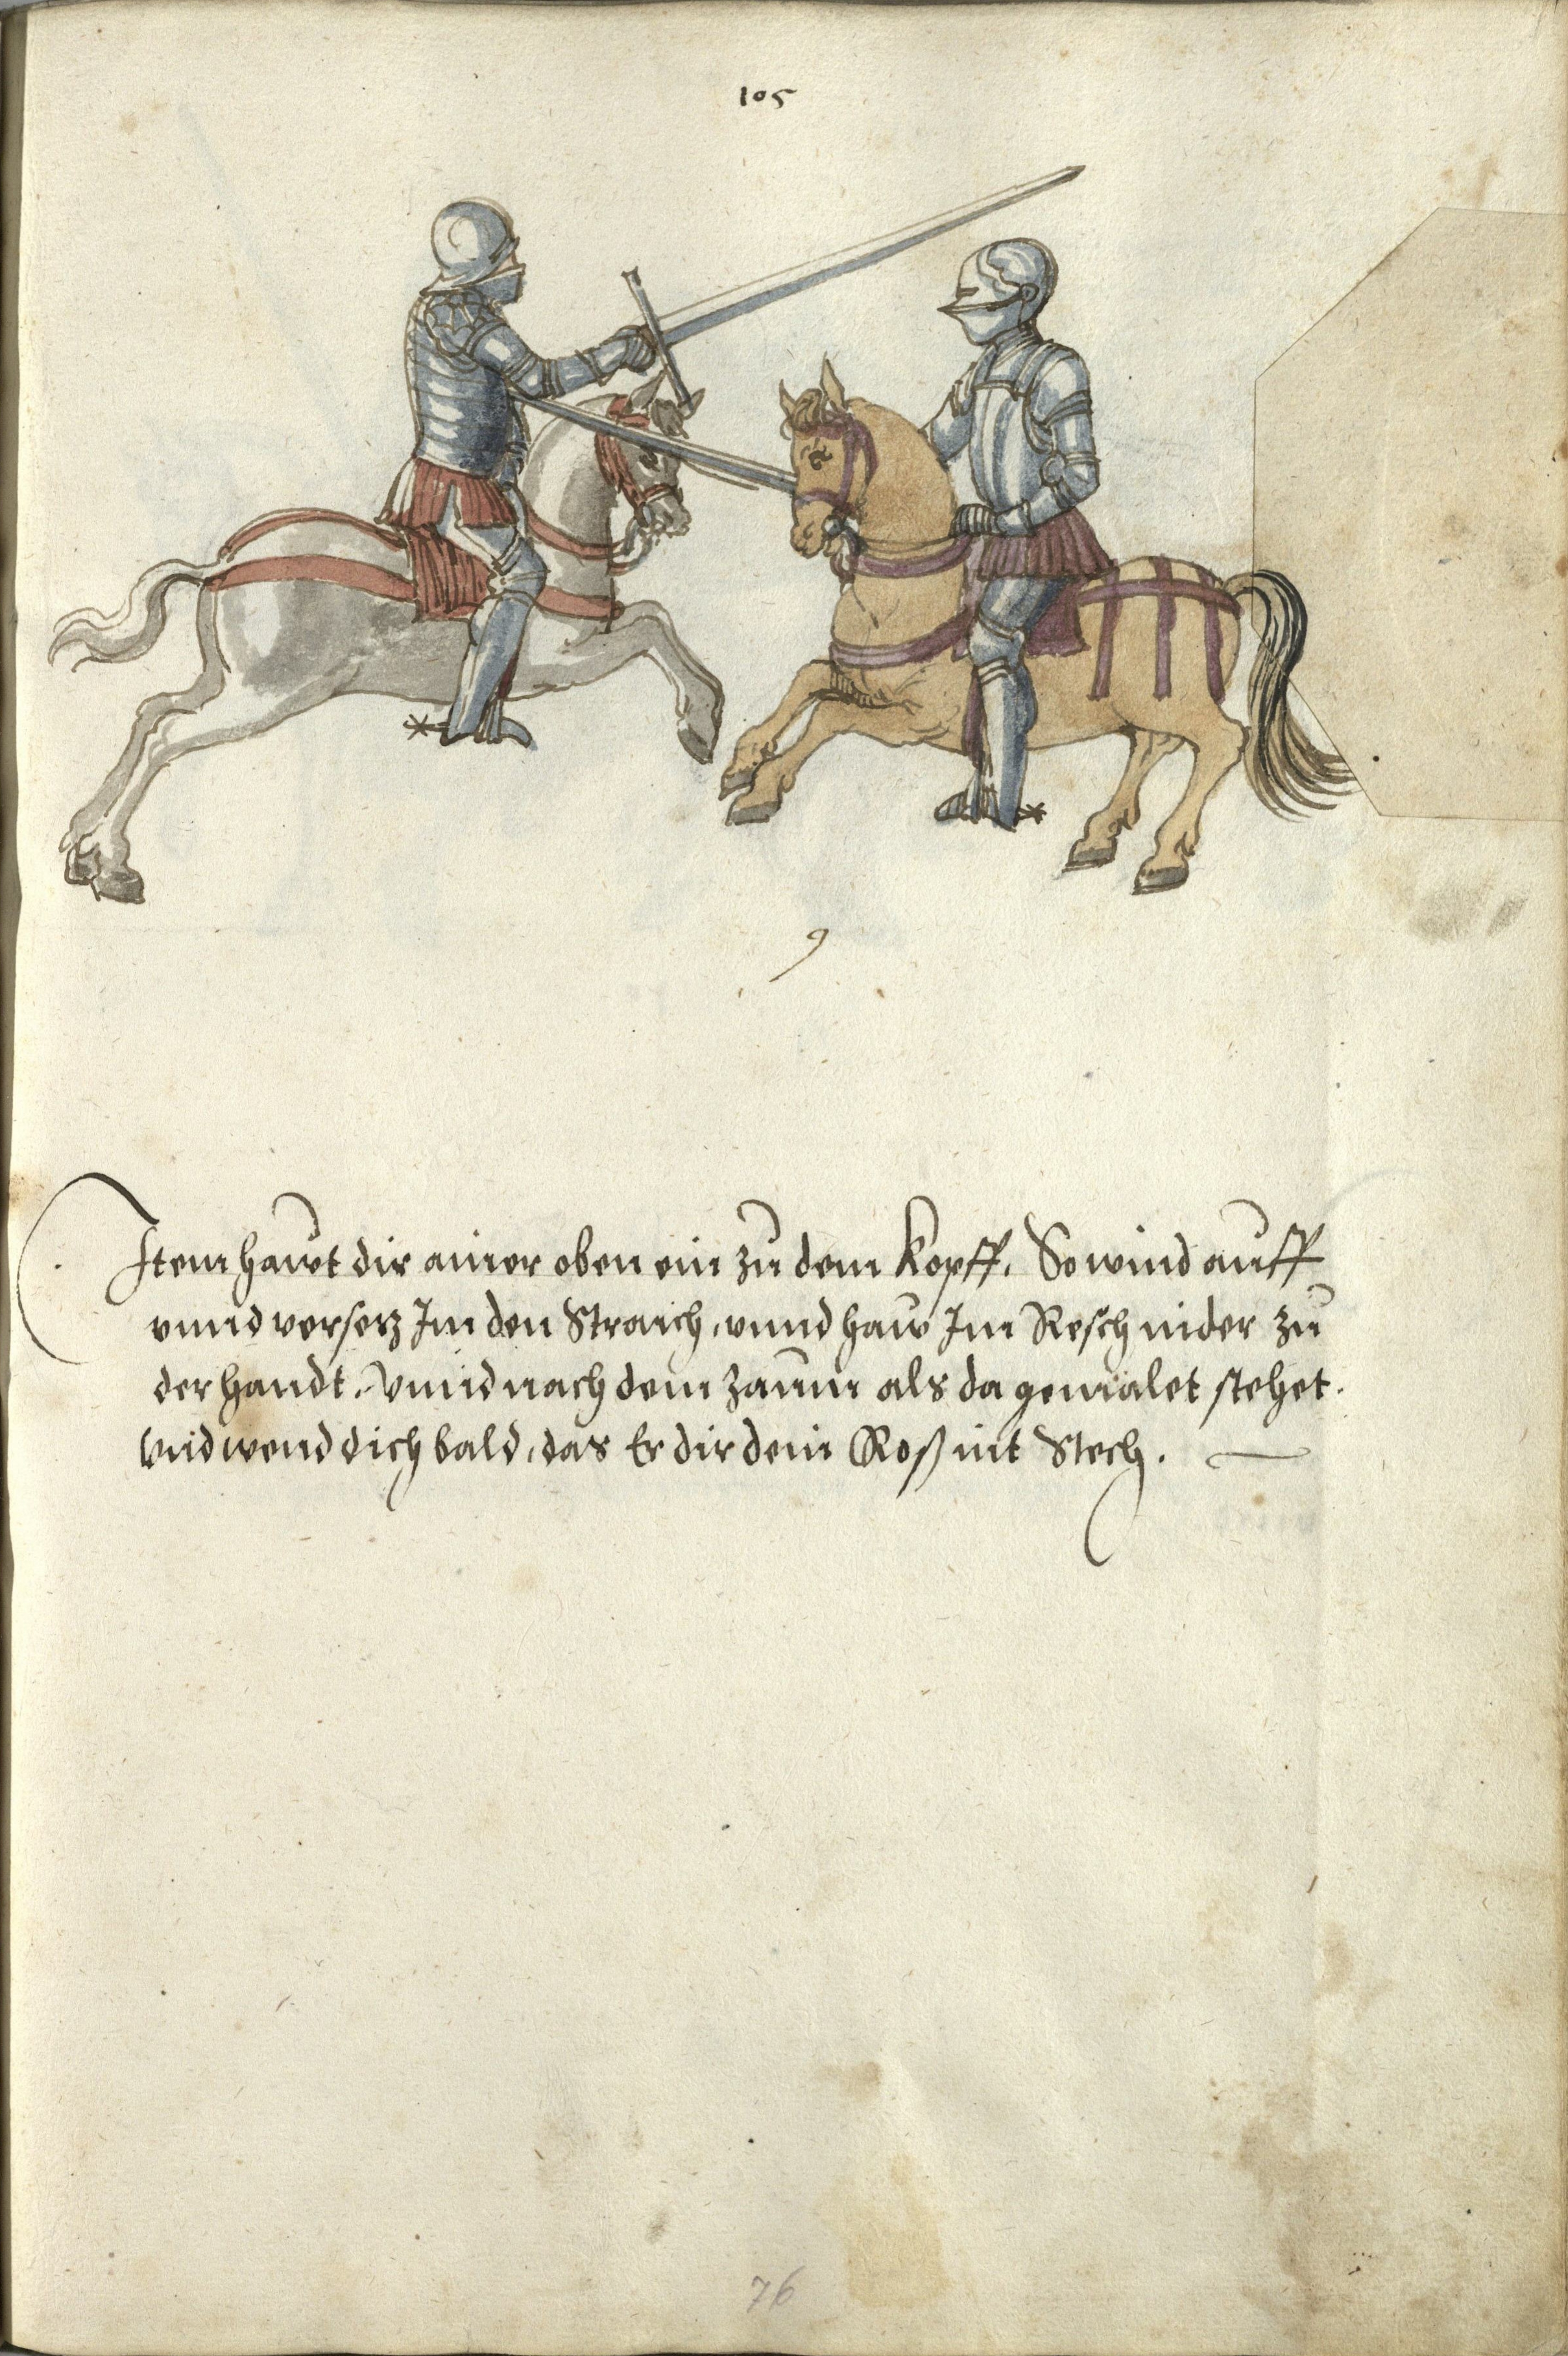 105
9
Item hawt dir ainer oben ein zu dem kopff. So wind auff
vnnd versetz Im den Straich, vnnd haw Im Resch nider zu
der handt. Vnnd nach dem zaumm als da gemalet stehet.
Vnd wend dich bald, das Er dir dein Roß nit Stech.
76